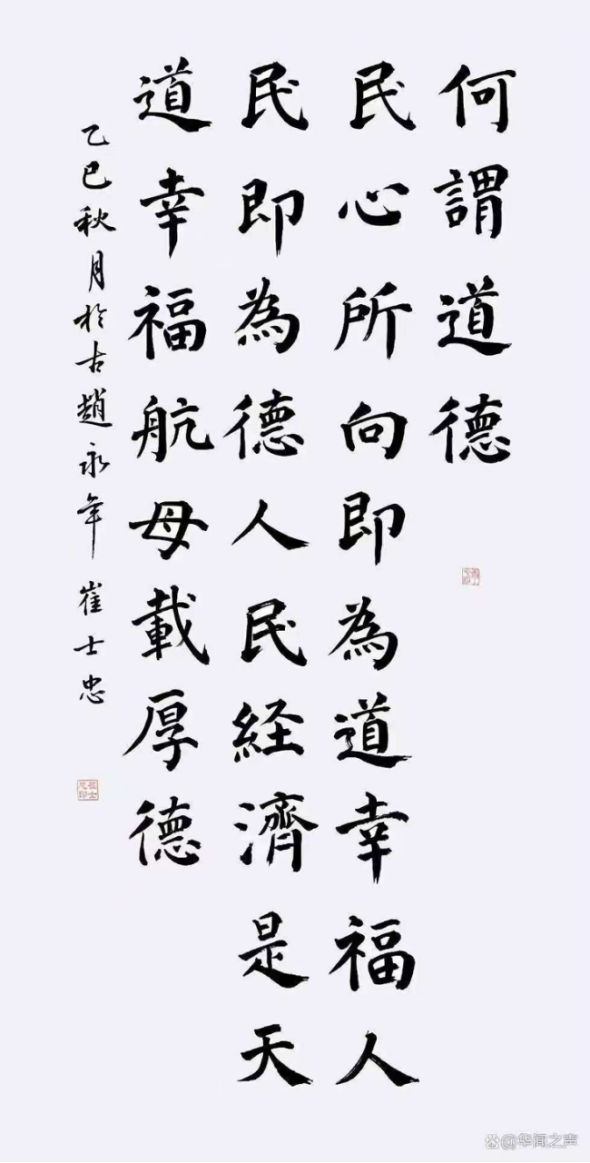 何謂道德
民心所向即為道幸福人
民即為德人民経濟是天
道幸福航母載厚德
乙巳秋月於古趙永年 崔士忠
@华闻之声